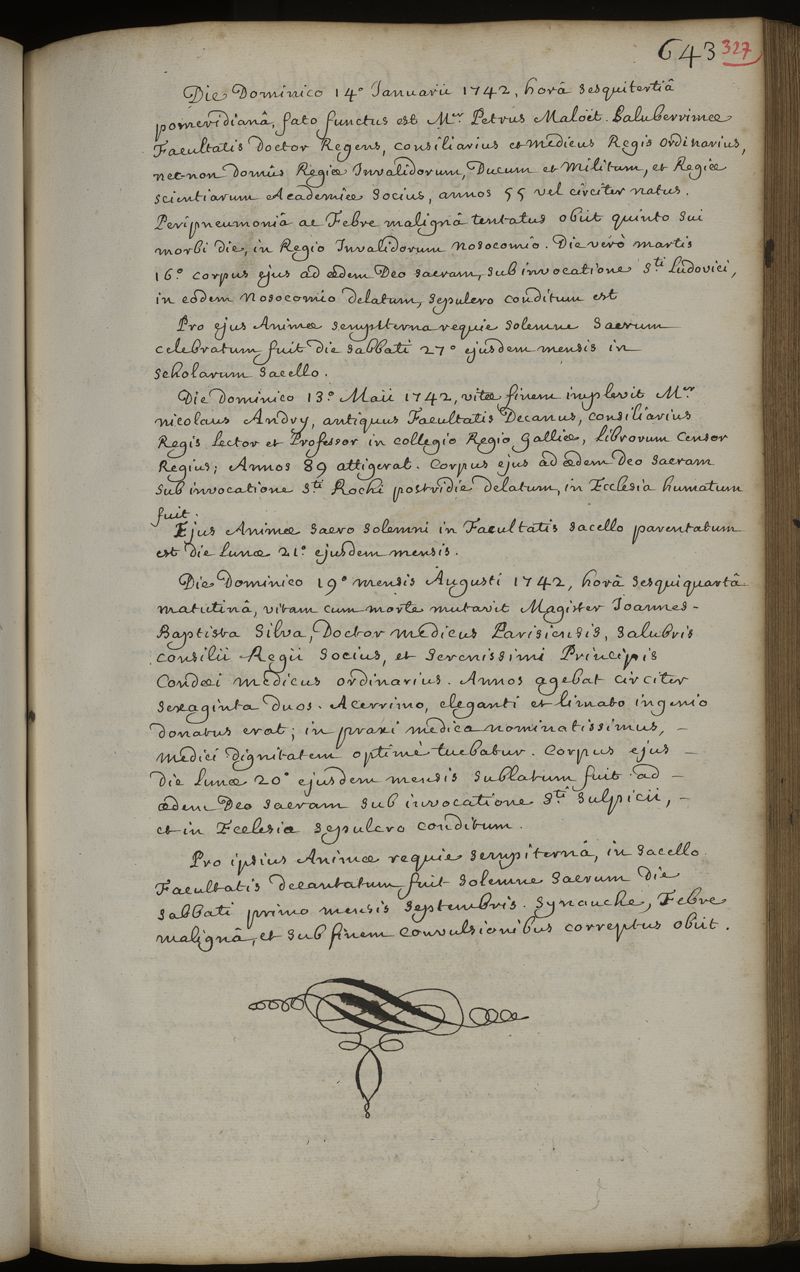 643 327
Die Dominico 14° Januarii 1742, horâ sesquitertiâ
pomeridianâ, fato functus est M.er Petrus Maloët. Saluberrimæ
Facultatis Doctor Regens, consiliarius et medicus Regis ordinarius,
necnon Domûs Regiæ Invalidorum, Ducum et Militum, et Regiæ
scientiarum Academiæ Socius, annos 55 vel circiter natus.
Peripneumoniâ ac Febre malignâ tentatus obiit quinto sui
morbi die, in Regio Invalidorum nosocomio. Die verò martis
16° corpus ejus ad ædem Deo sacram, sub invocatione S.ti Ludovici,
in eodem Nosocomio delatum, sepulcro conditum est
Pro ejus Animæ sempiterna requie Solemne Sacrum
celebratum fuit die sabbati 27° ejusdem mensis in
scholarum sacello.
Die Dominico 13° Maii 1742, vitæ finem implevit M.er
nicolaus Andry, antiquus Facultatis Decanus, consiliarius
Regis Lector et Professor in collegio Regio Galliæ, Librorum Censor
Regius; Annos 89 attigerat. Corpus ejus ad ædem Deo sacram
sub invocatione S.ti Rochi postridie delatum, in Ecclesia humatum
fuit.
Ejus Animæ sacro solemni in Facultatis sacello parentatum
est die Lunæ 21° ejusdem mensis.
Die Dominico 19° mensis Augusti 1742, horâ sesquiquartâ
matutinâ, vitam cum morte mutavit Magister Joannes-
Baptista Silva, Doctor medicus Parisiensis, salubris
consilii Regii Socius, et Serenissimi Principis
Condæi medicus ordinarius. Annos agebat circiter
sexaginta duos. Acerrimo, eleganti et limato ingenio
donatus erat; in praxi medica nominatissimus, -
medici dignitatem optimè tuebatur. Corpus ejus -
die Lunæ 20° ejusdem mensis sublatum fuit ad -
ædem Deo sacram sub invocatione S.ti Sulpicii, -
et in Ecclesia sepulcro conditum.
Pro ipsius Animæ requie sempiternâ, in sacello
Facultatis decantatum fuit solemne sacrum die
sabbati primo mensis septembris. Synanche, Febre
malignâ, et sub finem convulsionibus correptus obiit.